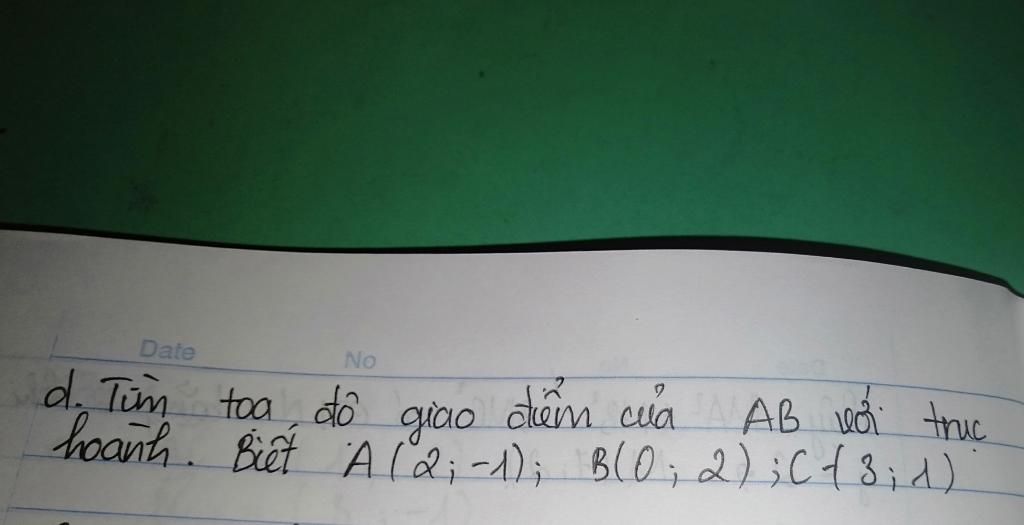 Date No
d. Tìm toạ độ giao điểm của AB với trục
hoành. Biết A(2;-1); B(0;2);C(3;1)